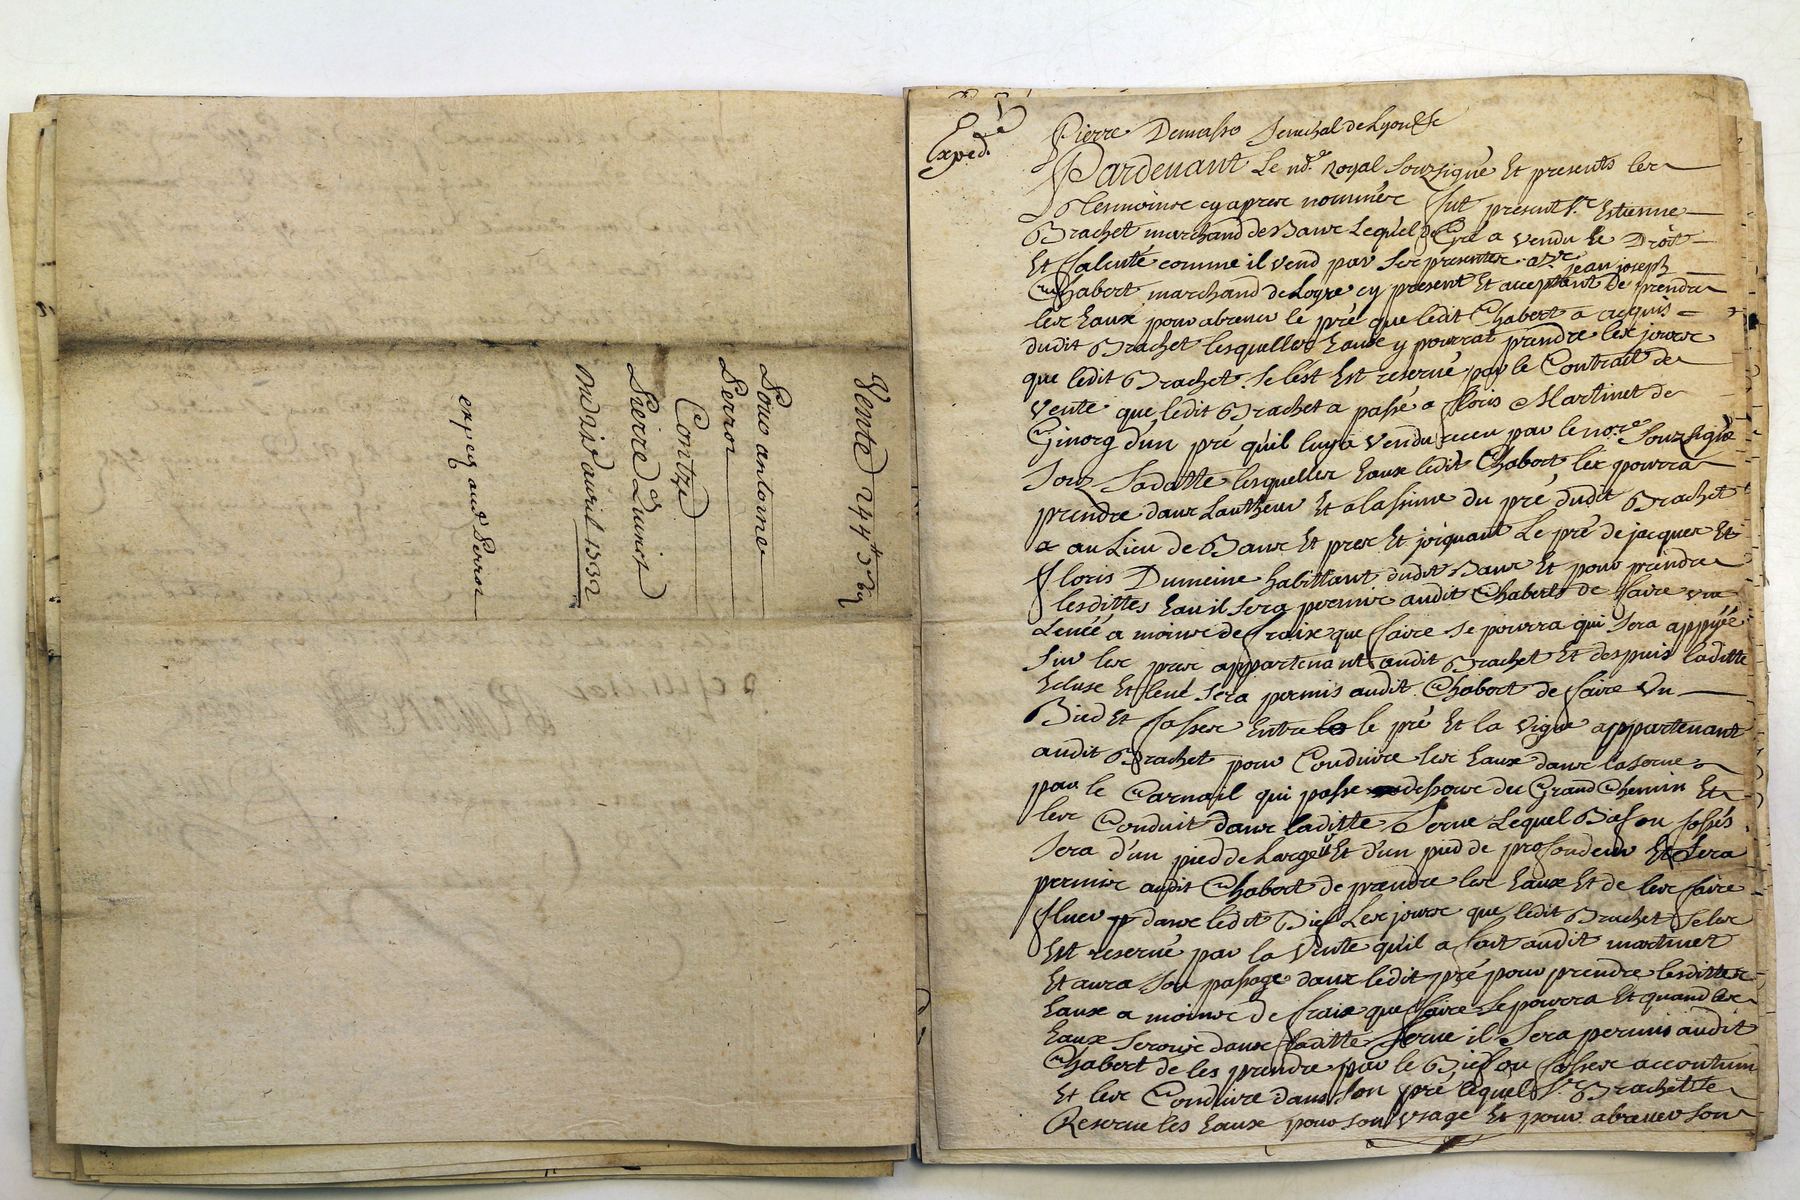 Vente 244# 3s 6d
Pour antoine
Perron
Contre
Pierre
avril 1732
exp eq aud Perron
Exped.é
Pierre Demasso Senechal de Lyon &c
Pardevant Le no.re royal souzsigné Et presents les
tesmoins cy apres nommés fut present s.r Estienne
Brachet marchand de Bans Lequel de Gré a vendu le Droit
Et faculté comme il vend par ses presentes a s.r jean joseph
Chabert marchand de Loyre cy present Et acceptant de prendre
les Eaux pour abreuer le pré que ledit Chabert a acquis
dudit Brachet lesquelles Eaux y pourrat prendre les jours
que ledit Brachet se lest Est reservé par le Contrait de
Vente que ledit Brachet a passé a floris Martinet de
Givorg d'un pré qu'il luy a vendu receu par le no.re souzsigné
souz sa datte lesquelles Eaux ledit Chabert les pourra
prendre dans Lautheur Et a la sime du pré dudit Brachet
a au Lieu de Bans Et pres Et joignant Le pré de jacques Et
floris Dumeine habittant dudit Bans Et pour prendre
lesdittes Eau il sera permis audit Chabert de faire une
Leveé a moins de fraix que faire se pourra qui sera appyée
sur les pres appartenant audit Brachet Et despuis laditte
Ecluse Et levé sera permis audit Chabert de faire Un
Bied Et fosses Entre le pré Et la vigne appartenant
audit Brachet pour Conduire les Eaux dans la serve
par le Carnail qui passe dessous du Grand Chemin Et
les Conduit dans laditte Serve Lequel Bief ou fossés
sera d'un pied de Largeur Et d'un pied de profondeur Et sera
permis audit Chabert de prendre les Eaux Et de les faire
fluer dans ledit Bief Les jours que ledit Brachet se les
Est reservé par la Vente qu'il a fait audit martinet
Et aura son passage dans ledit pré pour prendre lesdittes
Eaux a moins de fraix que faire se pourra Et quand les
Eaux serons dans laditte Serve il sera permis audit
Chabert de les prendre par le Bief ou fosses accoutumé
Et les Conduire dans son pré lequel s.r Brachet se
Reserve les Eaux pour son usage Et pour abreuer son